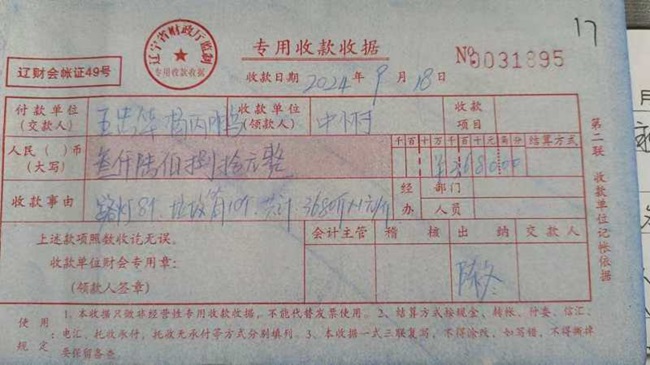 17
辽宁省财政厅监制
专用收款收据
辽财会帐证49号
专用收款收据
№0031895
收款日期 2024年9月18日
付款单位(交款人) 收款单位(领款人) 中怀村 收款项目
人民( )币(大写) 叁仟陆佰捌拾元整 千百十万千百十元角分 ¥368000 结算方式
收款事由 路灯8个 垃圾箱10个 共计3680斤×1元/斤 经办 部门 人员
上述款项照数收讫无误。
收款单位财会专用章：
(领款人签章)
会计主管 稽核 出纳 交款人
第二联 收款单位记帐依据
使用规定：1、本收据只做非经营性专用收款收据，不能代替发票使用。2、结算方式按现金、转帐、付委、信汇、
电汇、托收承付、托收无承付等方式分别填列。3、本收据一式三联复写，不得涂改，如写错，不得撕掉
要保留备查。